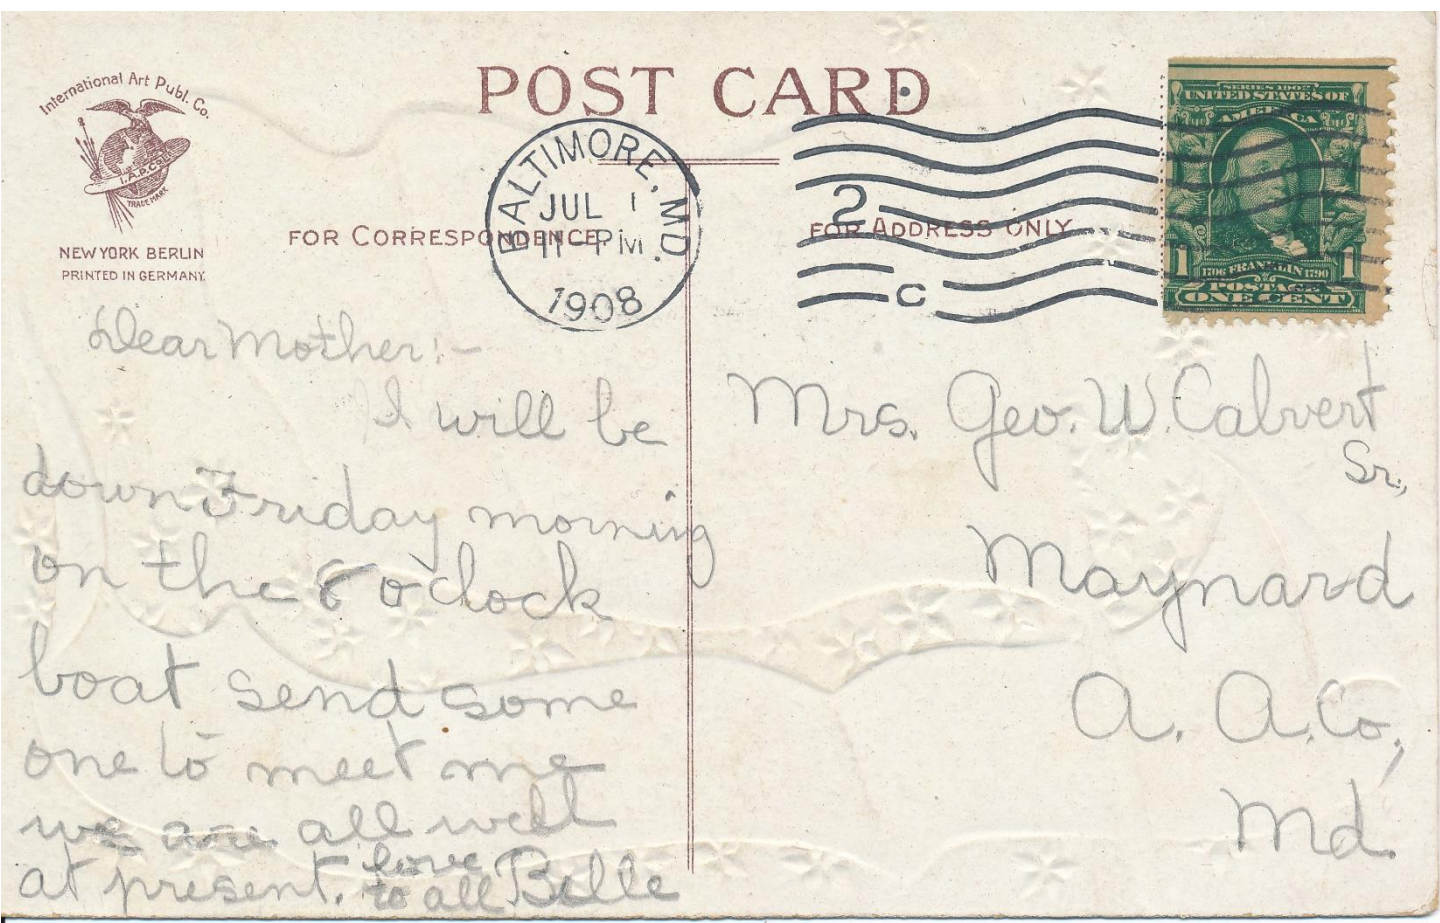 POST CARD
International Art Publ. Co.
I.A.P.Co.
TRADE MARK
NEW YORK BERLIN
PRINTED IN GERMANY.
FOR CORRESPONDENCE
FOR ADDRESS ONLY
BALTIMORE, MD.
JUL 1
11-PM
1908
2
C
SERIES 1902
UNITED STATES OF
AMERICA
1 1706 FRANKLIN 1790 1
POSTAGE
ONE CENT
Dear Mother:-
I will be
down Friday morning
on the 8 oclock
boat send some
one to meet me
we are all well
at present. love
to all Belle
Mrs. Geo. W. Calvert
Sr.,
Maynard
A. A. Co.,
Md.